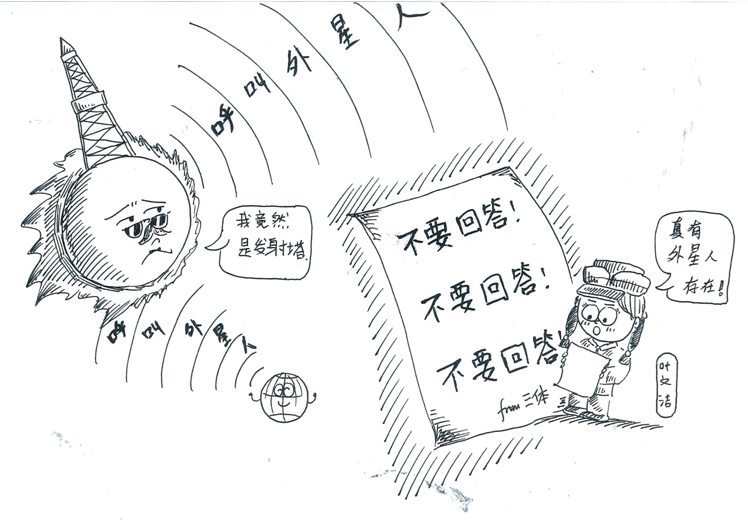 呼叫外星人
我竟然
是发射塔
呼叫外星人
不要回答！
不要回答！
不要回答！
from 三体
真有
外星人
存在！
叶文洁